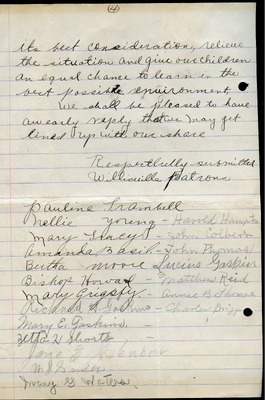 4
its best consideration, relieve
the situation and give our children
an equal chance to learn in the
best possible environment
We shall be pleased to have
an early reply that we may get
lined up with our share
Respectfully submitted
Willisville Patrons
Pauline
Nellie Young - Harold Hampton
Mary - John Colbert
Amanda Basil - John Thomas
Bertha Moore Lucius
Bishop Howard - Matthew Reid
Mary Gregory - Annie B. Thomas
- Charles
Mary E. Gaskins
Shorts
Jane
Mary G Waters